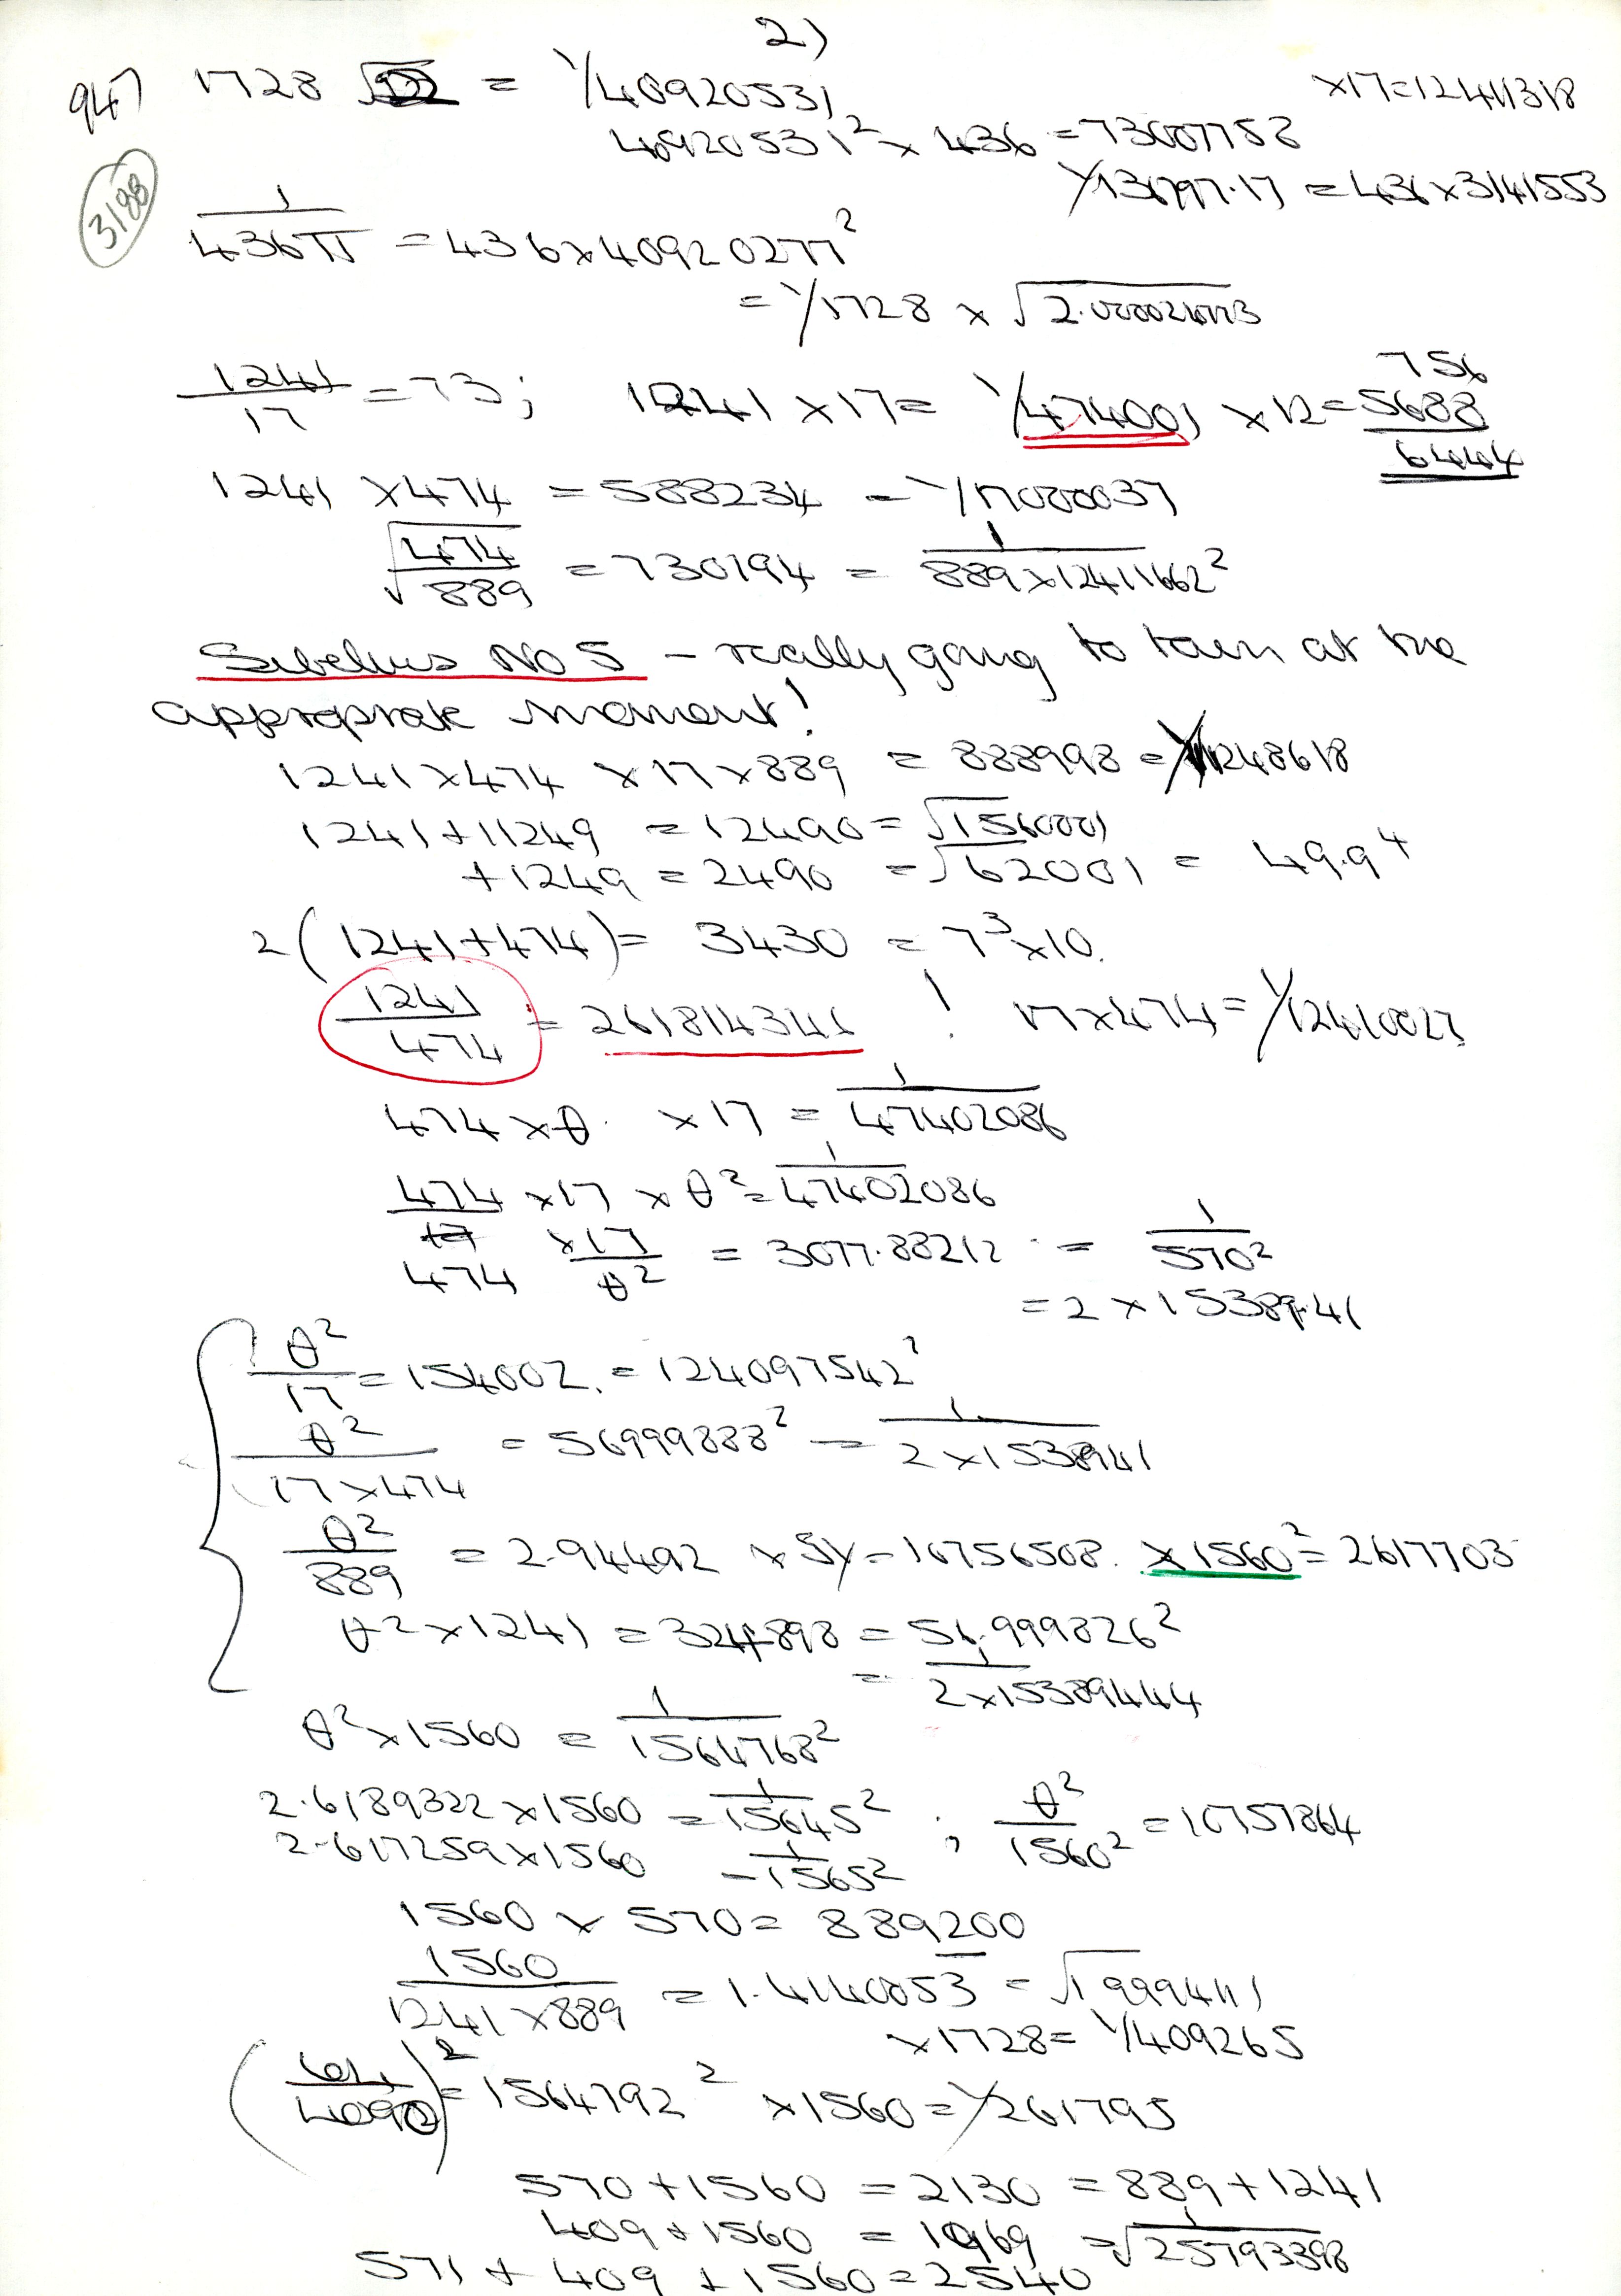 2)
947 1728 = 1/40920531 ×17=12411318
40920531² × 436 = 73007752
1/136797.17 = 436×3141553
3188
1/436π = 436×40920277²
= 1/1728 ×
1241/17 = 73; 1241 ×17= 1/474001 ×12=5688
756
6444
1241 ×474 = 588234 = 1/17000037
√474/889 = 730194 = 1/889×12411662²
Sibelius No 5 – really going to town at the
appropriate moment!
1241×474 ×17×889 = 888998 = 1/11248618
1241+11249 = 12490 = √1560001
+1249 = 2490 = √62001 = 49.9⁴
2(1241+474)= 3430 = 7³×10.
1241/474 = 261814346 ! 17×474= 1/12410027
474×θ ×17 = 1/47402086
474/17 ×17 × θ² = 1/47402086
474 ×17/θ² = 3077.88212 = 1/570²
= 2 × 15389.41
θ²/17 = 154002. = 124097542²
θ²/17×474 = 56999888² = 1/2×1538941
θ²/889 = 2.94492 × Sy = 10756508. ×1560² = 2617703
θ²×1241 = 324898 = 56.999826²
= 1/2×15389444
θ²×1560 = 1/1564768²
2.6189322×1560 = 1/15645² ; θ²/1560² = 10757864
2.617259×1560 = 1/1565²
1560 × 570 = 889200
1560/1241×889 = 1.4140053 = √1999411
×1728= 1/409265
4090 ² = 1564792² ×1560=1/261795
570+1560 = 2130 = 889+1241
409+1560 = 1969 = √1/25793398
571 + 409 + 1560=2540